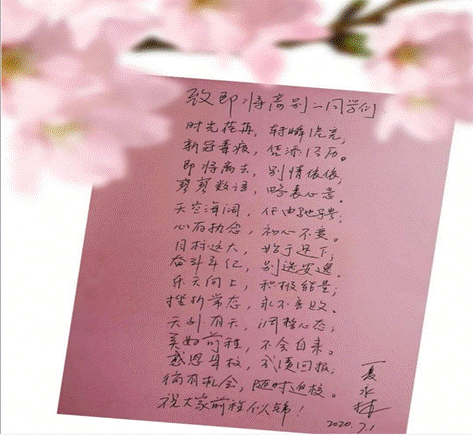 致即将离别的同学们
时光荏苒，转瞬流克，
新冠毒疫，倍添经历。
即将离去，别情依依，
寥寥数语，略表心意。
天空海阔，任由驰骋，
心存执念，初心不变。
目标远大，始于足下，
奋斗年纪，别选安逸。
乐天向上，积极能量，
挫折常态，永不言败。
天外有天，调整心态，
美好前程，不会自来。
感恩母校，成绩回报，
倘有机会，随时返校。
祝大家前程似锦！
夏永梅
2020.7.1